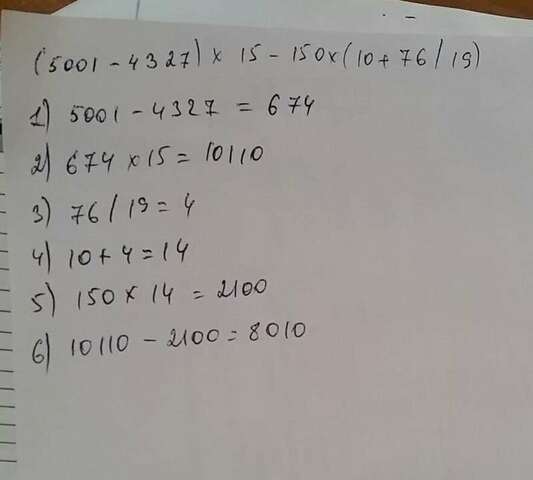 (5001 - 4327) × 15 - 150×(10 + 76 / 19)
1) 5001 - 4327 = 674
2) 674 × 15 = 10110
3) 76 / 19 = 4
4) 10 + 4 = 14
5) 150 × 14 = 2100
6) 10110 - 2100 = 8010